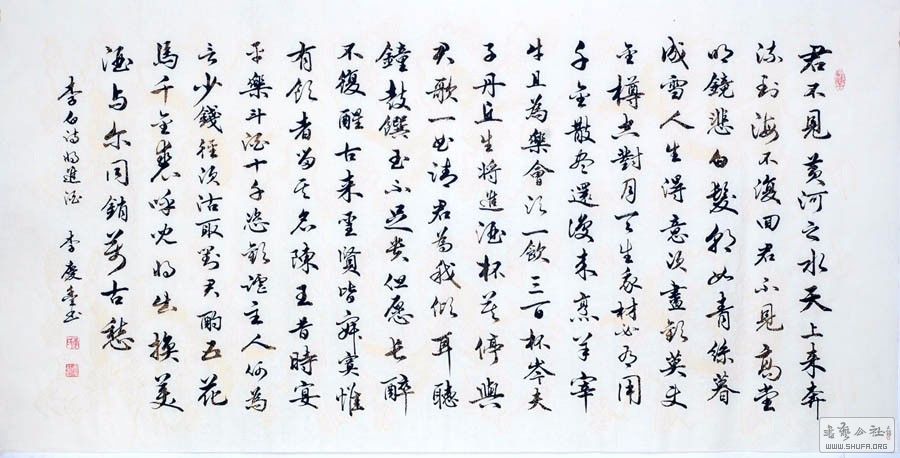 君不見黄河之水天上来奔
流到海不復回君不見高堂
明鏡悲白髮朝如青絲暮
成雪人生得意須盡歡莫使
金樽空對月天生我材必有用
千金散盡還復来烹羊宰
牛且為樂會須一飲三百杯岑夫
子丹丘生將進酒杯莫停與
君歌一曲請君為我傾耳聽
鐘鼓饌玉不足貴但愿長醉
不復醒古来聖賢皆寂寞惟
有飲者留其名陳王昔時宴
平樂斗酒十千恣歡謔主人何為
言少錢徑須沽取對君酌五花
馬千金裘呼兒將出換美
酒与尔同銷萬古愁
李白詩將進酒 李慶书
书艺公社
WWW.SHUFA.ORG